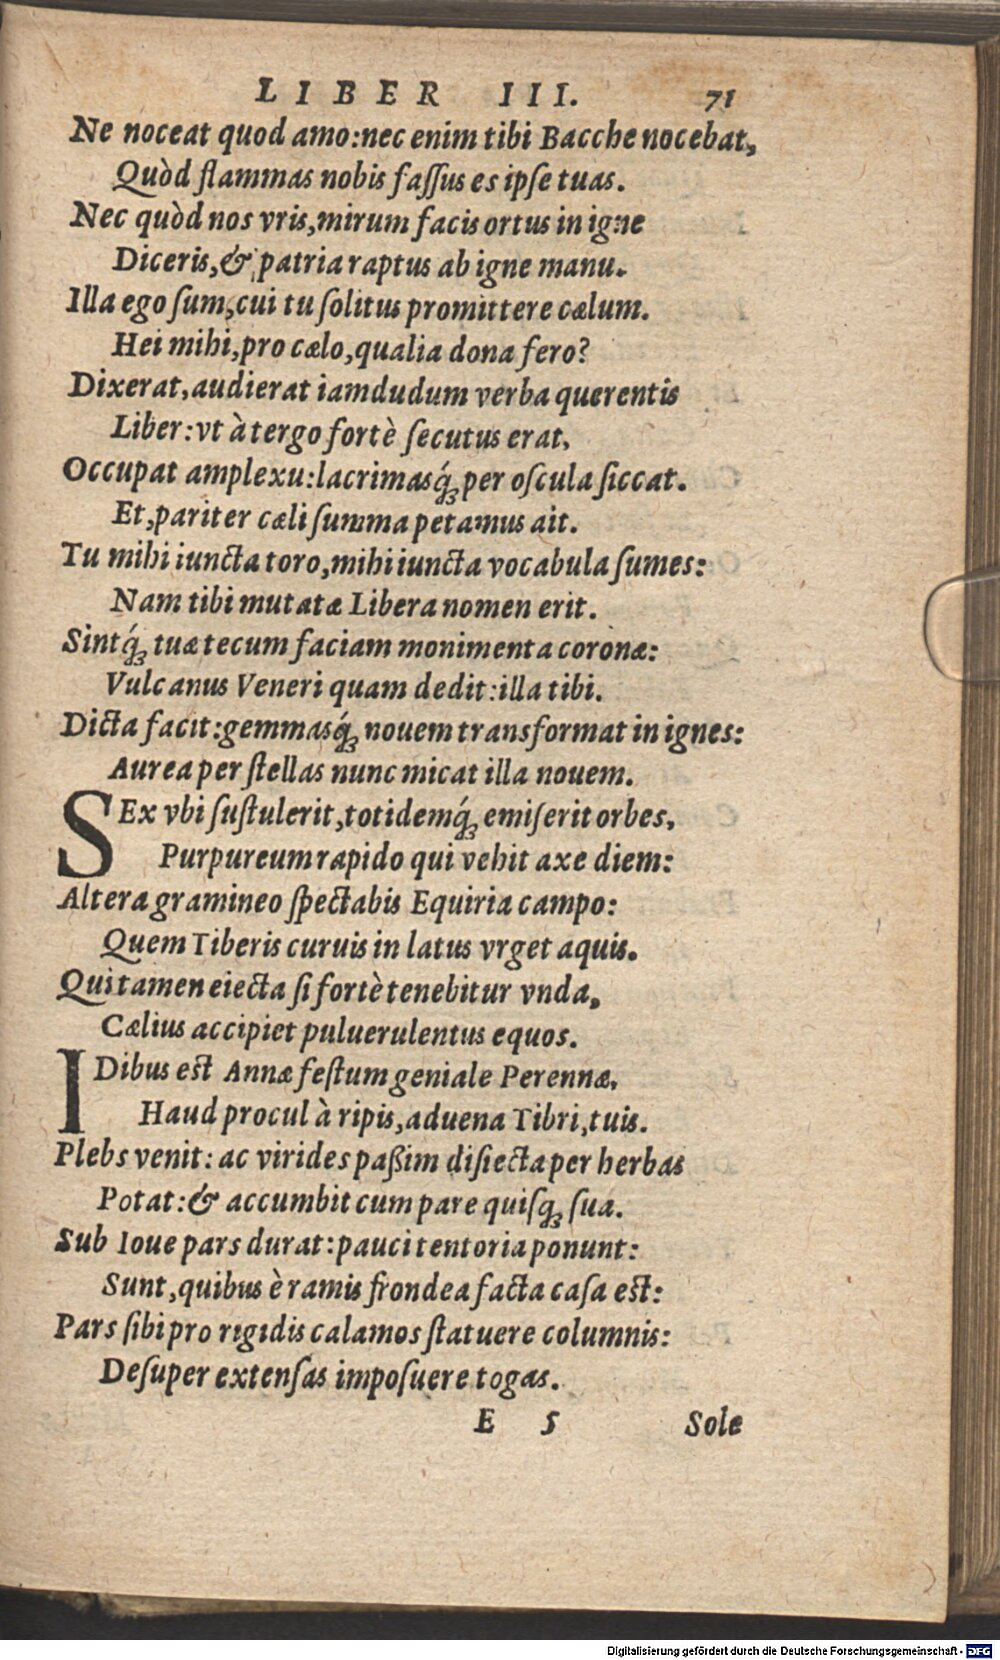 LIBER III. 71
Ne noceat quod amo:nec enim tibi Bacche nocebat,
Quòd flammas nobis faſſus es ipſe tuas.
Nec quòd nos vris,mirum facis ortus in igne
Diceris,& patria raptus ab igne manu.
Illa ego ſum,cui tu ſolitus promittere cælum.
Hei mihi,pro cælo,qualia dona fero?
Dixerat,audierat iamdudum verba querentis
Liber:vt à tergo fortè ſecutus erat,
Occupat amplexu:lacrimasq́; per oſcula ſiccat.
Et,pariter cæli ſumma petamus ait.
Tu mihi iuncta toro,mihi iuncta vocabula ſumes:
Nam tibi mutatæ Libera nomen erit.
Sintq́; tuæ tecum faciam monimenta coronæ:
Vulcanus Veneri quam dedit:illa tibi.
Dicta facit:gemmasq́; nouem transformat in ignes:
Aurea per ſtellas nunc micat illa nouem.
SEx vbi ſuſtulerit,totidemq́; emiſerit orbes,
Purpureum rapido qui vehit axe diem:
Altera gramineo ſpectabis Equiria campo:
Quem Tiberis curuis in latus vrget aquis.
Qui tamen eiecta ſi fortè tenebitur vnda,
Cælius accipiet puluerulentus equos.
IDibus est Annæ feſtum geniale Perennæ,
Haud procul à ripis,aduena Tibri,tuis.
Plebs venit: ac virides paßim diſiecta per herbas
Potat:& accumbit cum pare quiſq; ſua.
Sub Ioue pars durat:pauci tentoria ponunt:
Sunt,quibus è ramis frondea facta caſa est:
Pars ſibi pro rigidis calamos ſtatuere columnis:
Deſuper extenſas impoſuere togas.
E 5 Sole
Digitalisierung gefördert durch die Deutsche Forschungsgemeinschaft - DFG